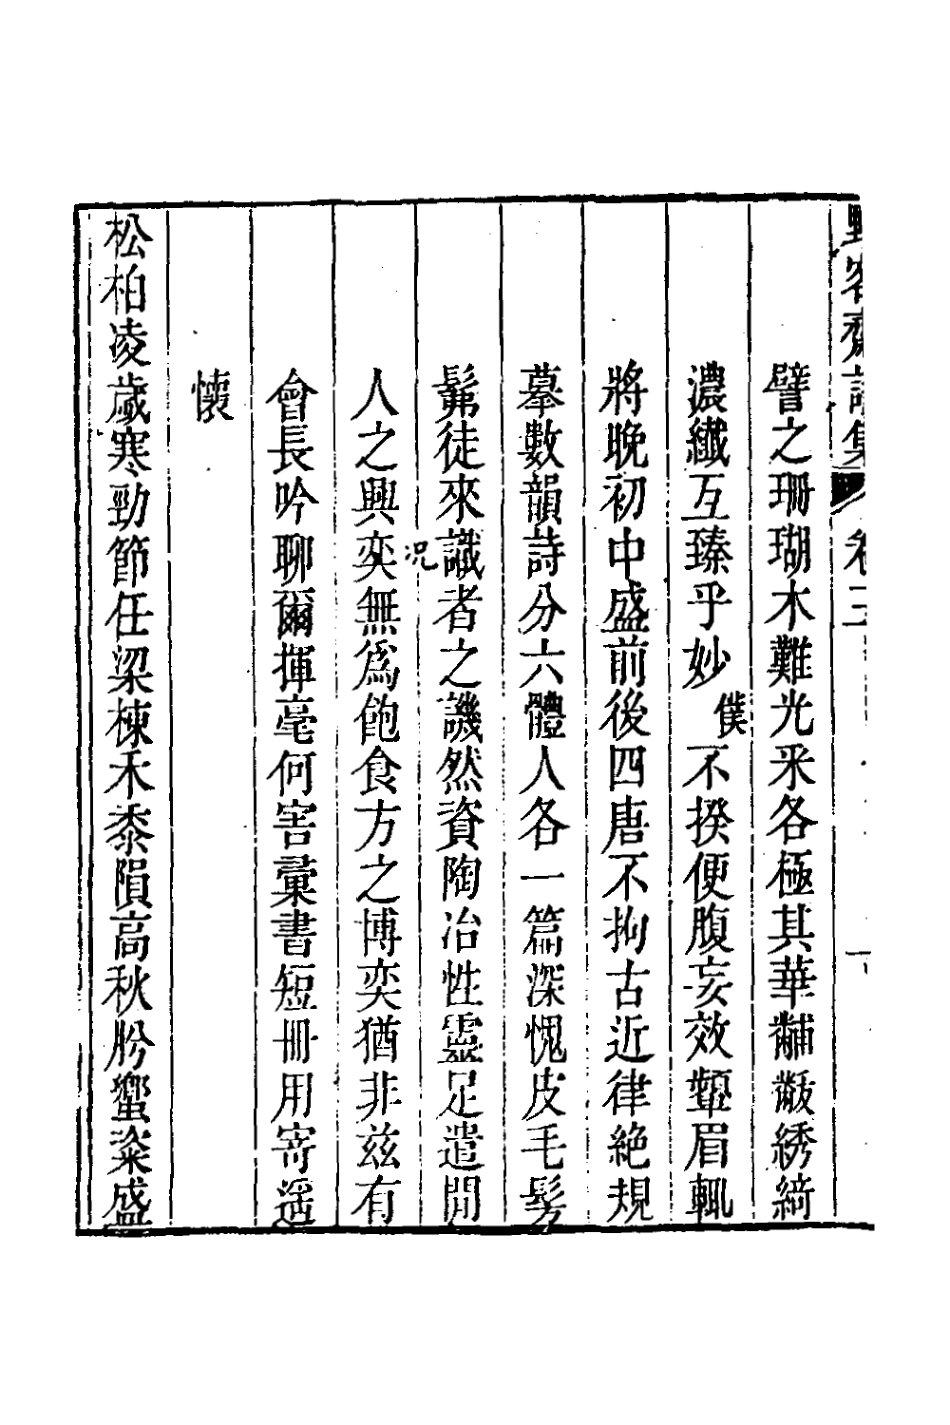 客齋詩集 卷
一
譬之珊瑚木難光釆各極其華黼黻綉綺
濃纖互臻乎妙僕不揆便腹妄效顰眉輒
將晚初中盛前後四唐不拘古近律絶規
摹數韻詩分六體人各一篇深愧皮毛髣
髴徒來識者之譏然資陶冶性靈足遣閒
况
人之興奕無爲飽食方之博奕猶非兹有
會長吟聊爾揮毫何害彚書短冊用寄遥
懷
松柏凌歲寒勁節任梁棟禾黍隕高秋肹蠁粢盛